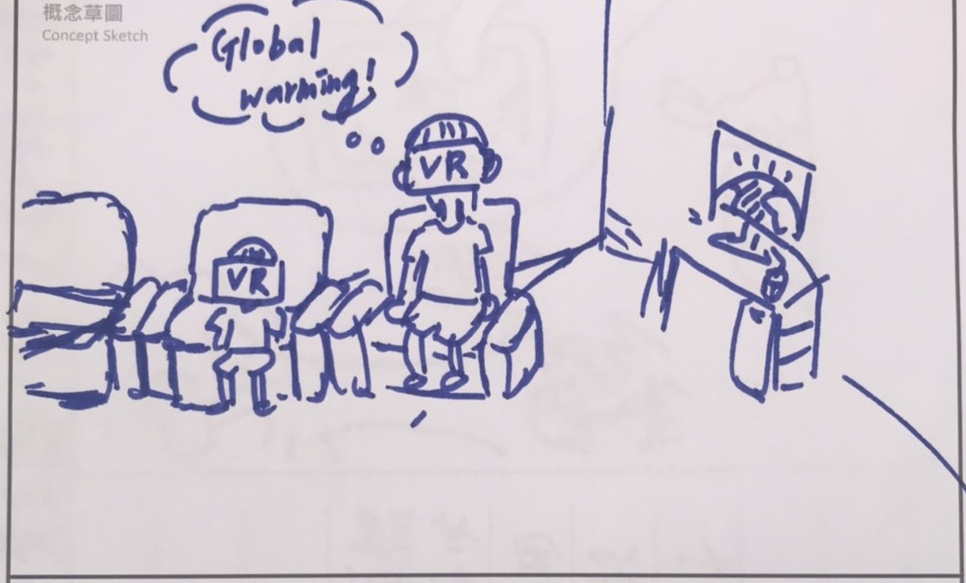 概念草圖
Concept Sketch
Global
warming!
VR
VR